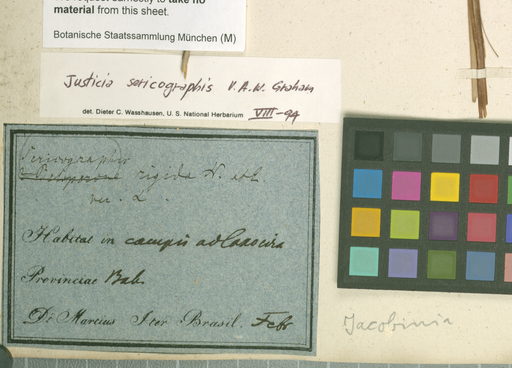 material from this sheet.
Botanische Staatssammlung München (M)
Justicia sericographis V.A.W. Graham
det. Dieter C. Wasshausen, U. S. National Herbarium VIII-94
Sericographis
rigida N. ab E.
var. 2.
Habitat in campis ad Caxoeira
Provinciae Bah.
Dr. Martius Iter Brasil. Febr
Jacobinia